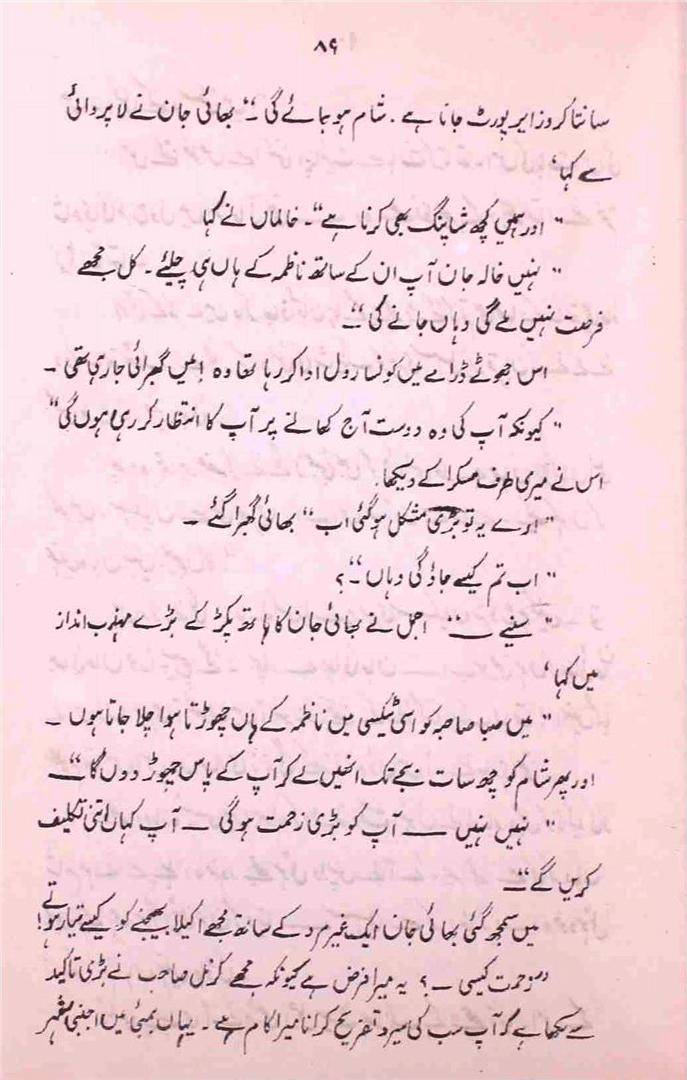 ۸۹
سانتا کروز ایر پورٹ جانا ہے . شام ہو جائے گی ۔" بھائی جان نے لاپروائی
سے کہا‘
" اور ہمیں کچھ شاپنگ بھی کرنا ہے "۔ خالماں نے کہا
" نہیں خالہ جان آپ ان کے ساتھ ناظمہ کے ہاں ہی چلیئے ۔ کل مجھے
فرصت نہیں ملے گی وہاں جانے کی "۔
اس جھوٹے ڈرامے میں کونسا رول ادا کر رہا تھا وہ میں گھبرائی جا رہی تھی ۔
" کیونکہ آپ کی وہ دوست آج کھانے پر آپ کا انتظار کر رہی ہوں گی "
اس نے میری طرف مسکرا کے دیکھا .
" ارے یہ تو بڑی مشکل ہو گئی اب " بھائی گھبرا گئے ۔
" اب تم کیسے جاؤ گی وہاں "۔؟
" سنیے ۔۔۔ " اجمل نے بھائی جان کا ہاتھ پکڑ کے بڑے مہذب انداز
میں کہا ‘
" میں صبا صاحبہ کو اسی ٹیکسی میں ناظمہ کے ہاں چھوڑتا ہوا چلا جاتا ہوں ۔
اور پھر شام کو چھ سات بجے تک انھیں لے کر آپ کے پاس چھوڑ دوں گا "۔
" نہیں نہیں ۔۔۔ آپ کو بڑی زحمت ہوگی ۔ آپ کہاں اتنی تکلیف
کریں گے "۔
میں سمجھ گئی بھائی جان ایک غیر مرد کے ساتھ مجھے اکیلا بھیجنے کو کیسے تیار ہوتے!
" زحمت کیسی ۔؟ یہ میرا فرض ہے کیونکہ مجھے کرنل صاحب نے بڑی تاکید
سے لکھا ہے کہ آپ سب کی سیر و تفریح کرانا میرا کام ہے ۔ یہاں بمبئی میں اجنبی